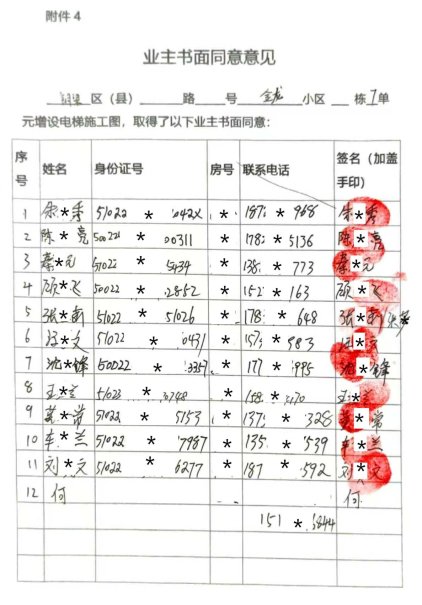 附件 4
业主书面同意意见
区（县） 路 号 金龙 小区 栋 1 单
元增设电梯施工图，取得了以下业主书面同意：
序号 姓名 身份证号 房号 联系电话 签名（加盖手印）
1 余*秀 51022 * 042X * 187 * 968 余*秀
2 陈*亮 500221 * 00311 * 178 * 5136 陈*亮
3 秦*元 51022 * 5434 * 138 * 773 秦*元
4 *飞 50022 * 2852 * 152 * 163 *飞
5 张* 51022 * 51026 * 178 * 648 张*
6 *文 51022 * 0431 * 157 * 983 *文
7 * 50022 * 3357 * 177 * 995 *
8 王*兰 * 王*兰
9 *常 51022 * 5153 * 137 * 328 *常
10 车*兰 51022 * 7987 * 135 * 539 车*兰
11 刘*文 51022 * 6277 * 187 * 592 刘*文
12 何 何
151 * 3844